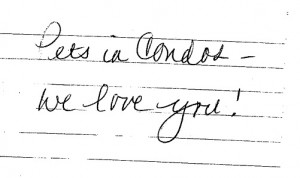 Pets in Condos –
we love you!